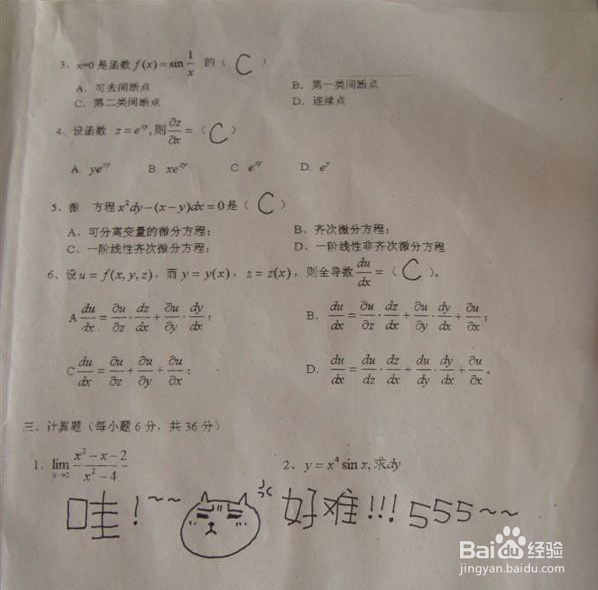 3、x=0 是函数 f(x)=sin 1/x 的（ C ）
A．可去间断点 B．第一类间断点
C．第二类间断点 D．连续点
4、设函数 z=e^{xy},则 ∂z/∂x =（ C ）
A. ye^{xy} B. xe^{xy} C e^{xy} D. e^y
5、微 方程 x²dy-(x-y)dx=0是（ C ）
A、可分离变量的微分方程； B、齐次微分方程；
C、一阶线性齐次微分方程； D、一阶线性非齐次微分方程
6、设 u=f(x,y,z)，而 y=y(x)，z=z(x)，则全导数 du/dx =（ C ）。
A du/dx = ∂u/∂z · dz/dx + ∂u/∂y · dy/dx； B. du/dx = ∂u/∂z · dz/dx + ∂u/∂y · dy/dx + ∂u/∂x；
C du/dx = ∂u/∂z + ∂u/∂y + ∂u/∂x； D. du/dx = du/dz · dz/dx + du/dy · dy/dx + ∂u/∂x。
三、计算题（每小题 6 分，共 36 分）
1、lim (x²-x-2)/(x²-4) 2、y=x⁴ sin x,求dy
哇！~~ 好难!!! 555~~
Baidu经验
jingyan.baidu.com